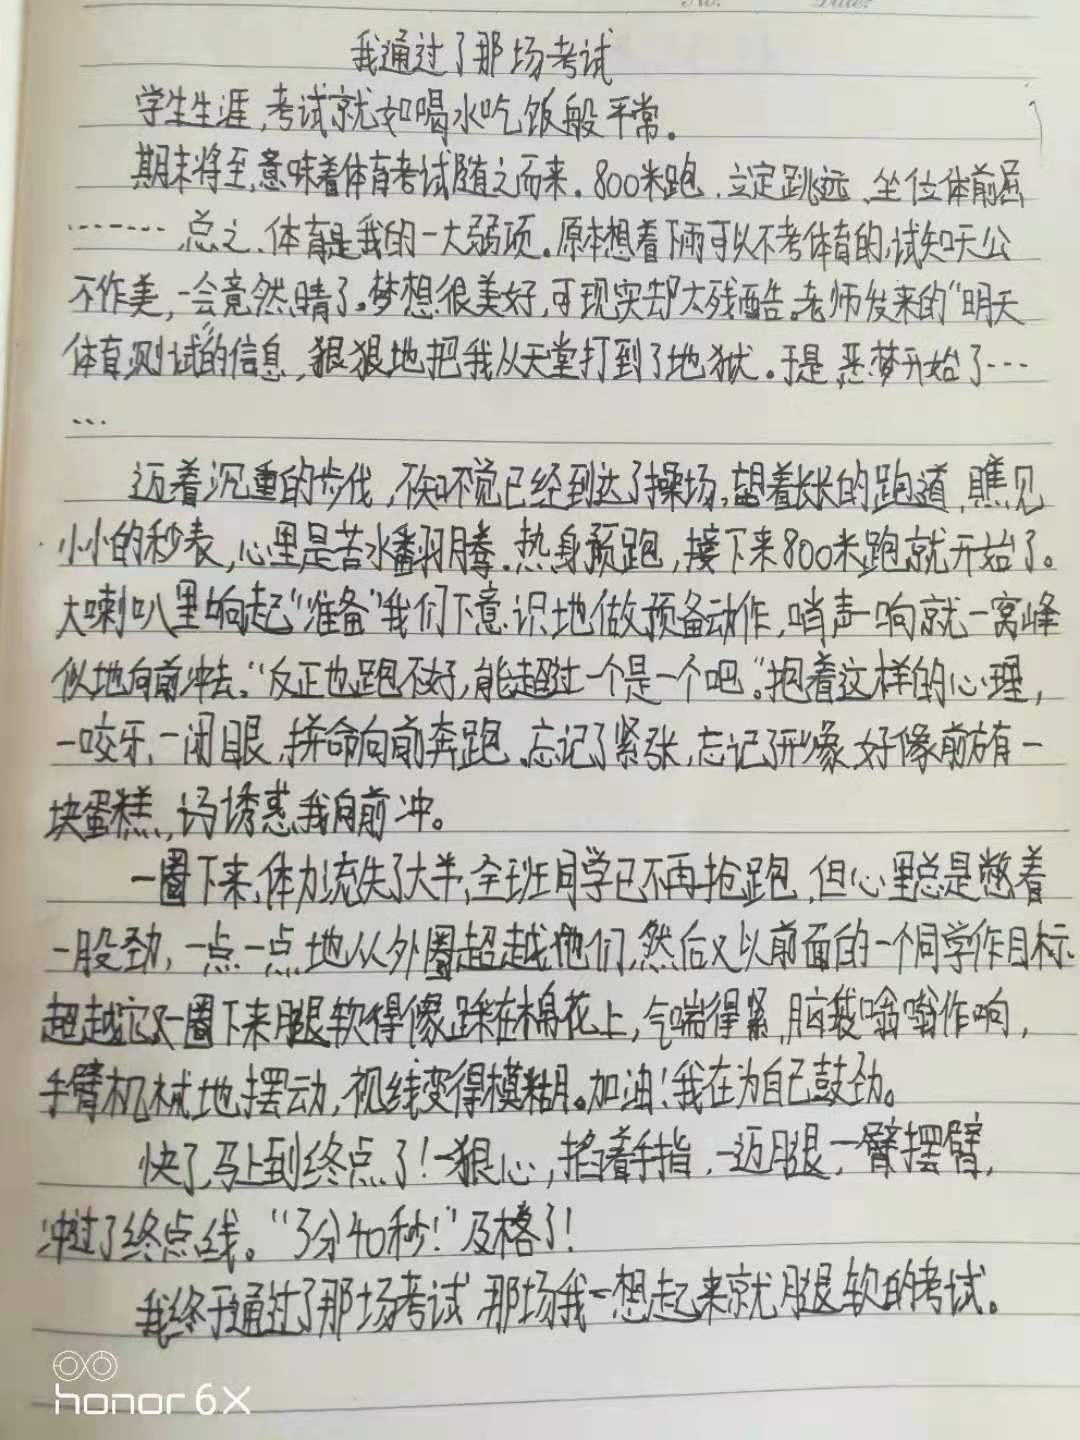 No. Date:
我通过了那场考试
学生生涯,考试就如喝水吃饭般平常。
期末将至,意味着体育考试随之而来。800米跑、立定跳远、坐位体前屈
……总之,体育是我的一大弱项。原本想着下雨可以不考体育的,试知天公
不作美,一会竟然晴了。梦想很美好,可现实却太残酷。老师发来的“明天
体育测试”的信息,狠狠地把我从天堂打到了地狱。于是,恶梦开始了…
…
迈着沉重的步伐,不知不觉已经到达了操场,望着长长的跑道,瞧见
小小的秒表,心里是苦水翻腾。热身预跑,接下来800米跑就开始了。
大喇叭里响起“准备”我们下意识地做预备动作,哨声一响就一窝峰
似地向前冲去。“反正也跑不好,能超过一个是一个吧”。抱着这样的心理,
一咬牙,一闭眼,拼命向前奔跑。忘记了紧张,忘记了形象,好像前方有一
块蛋糕,诱惑我向前冲。
一圈下来,体力流失了大半,全班同学已不再抢跑,但心里总是憋着
一股劲,一点一点地从外圈超越他们,然后又以前面的一个同学作目标
超越它又一圈下来腿软得像踩在棉花上,气喘得紧,脑袋嗡嗡作响,
手臂机械地摆动,视线变得模糊。加油!我在为自己鼓劲。
快了,马上到终点了!一狠心,掐着手指,一迈腿,一臂摆臂,
冲过了终点线。“3分40秒!”及格了!
我终于通过了那场考试,那场我一想起来就腿软的考试。
honor 6X